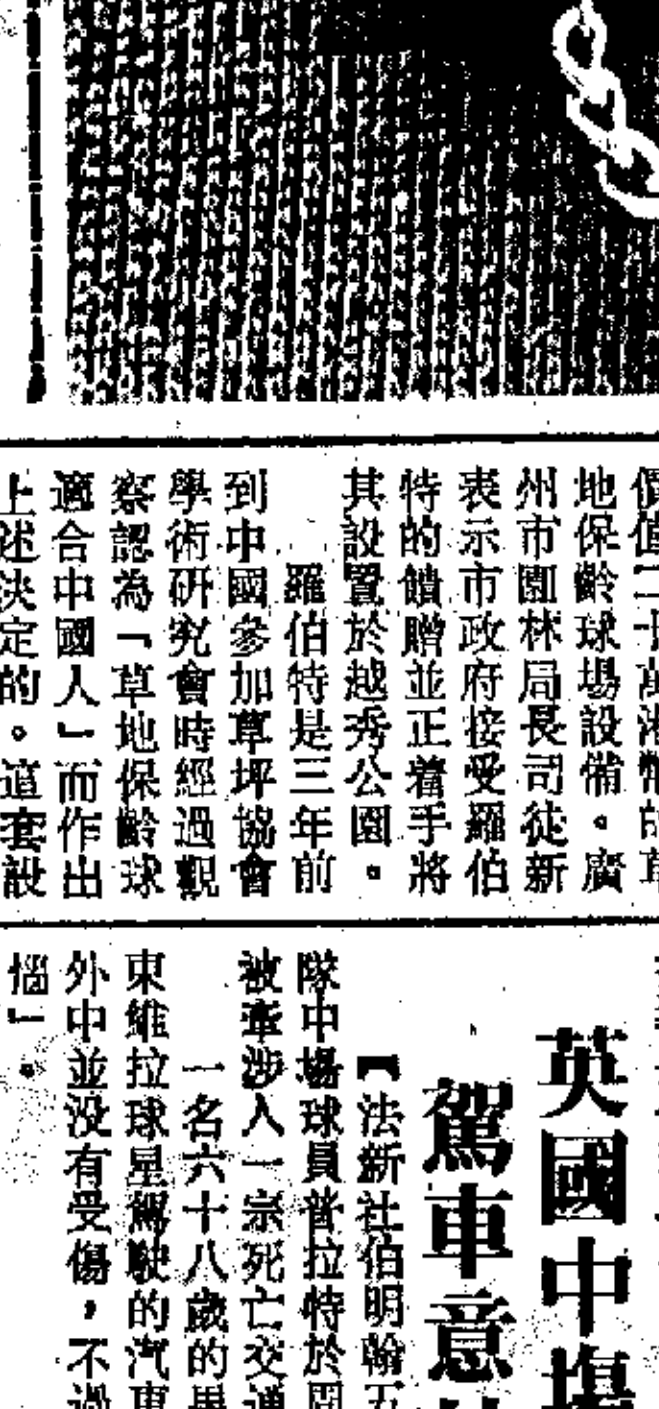 價值二十萬港幣的草
地保齡球場設備。廣
州市園林局長司徒新
表示市政府接受羅伯
特的饋贈並正着手將
其設置於越秀公園。
羅伯特是三年前
到中國參加草坪協會
學術研究會時經過觀
察認為「草地保齡球
適合中國人」而作出
上述決定的。這套設
英國中場
駕車意
【法新社伯明翰五
隊中場球員普拉特於周
被牽涉入一宗死亡交通
一名六十八歲的男
東維拉球星駕駛的汽車
外中並没有受傷，不過
惱」。